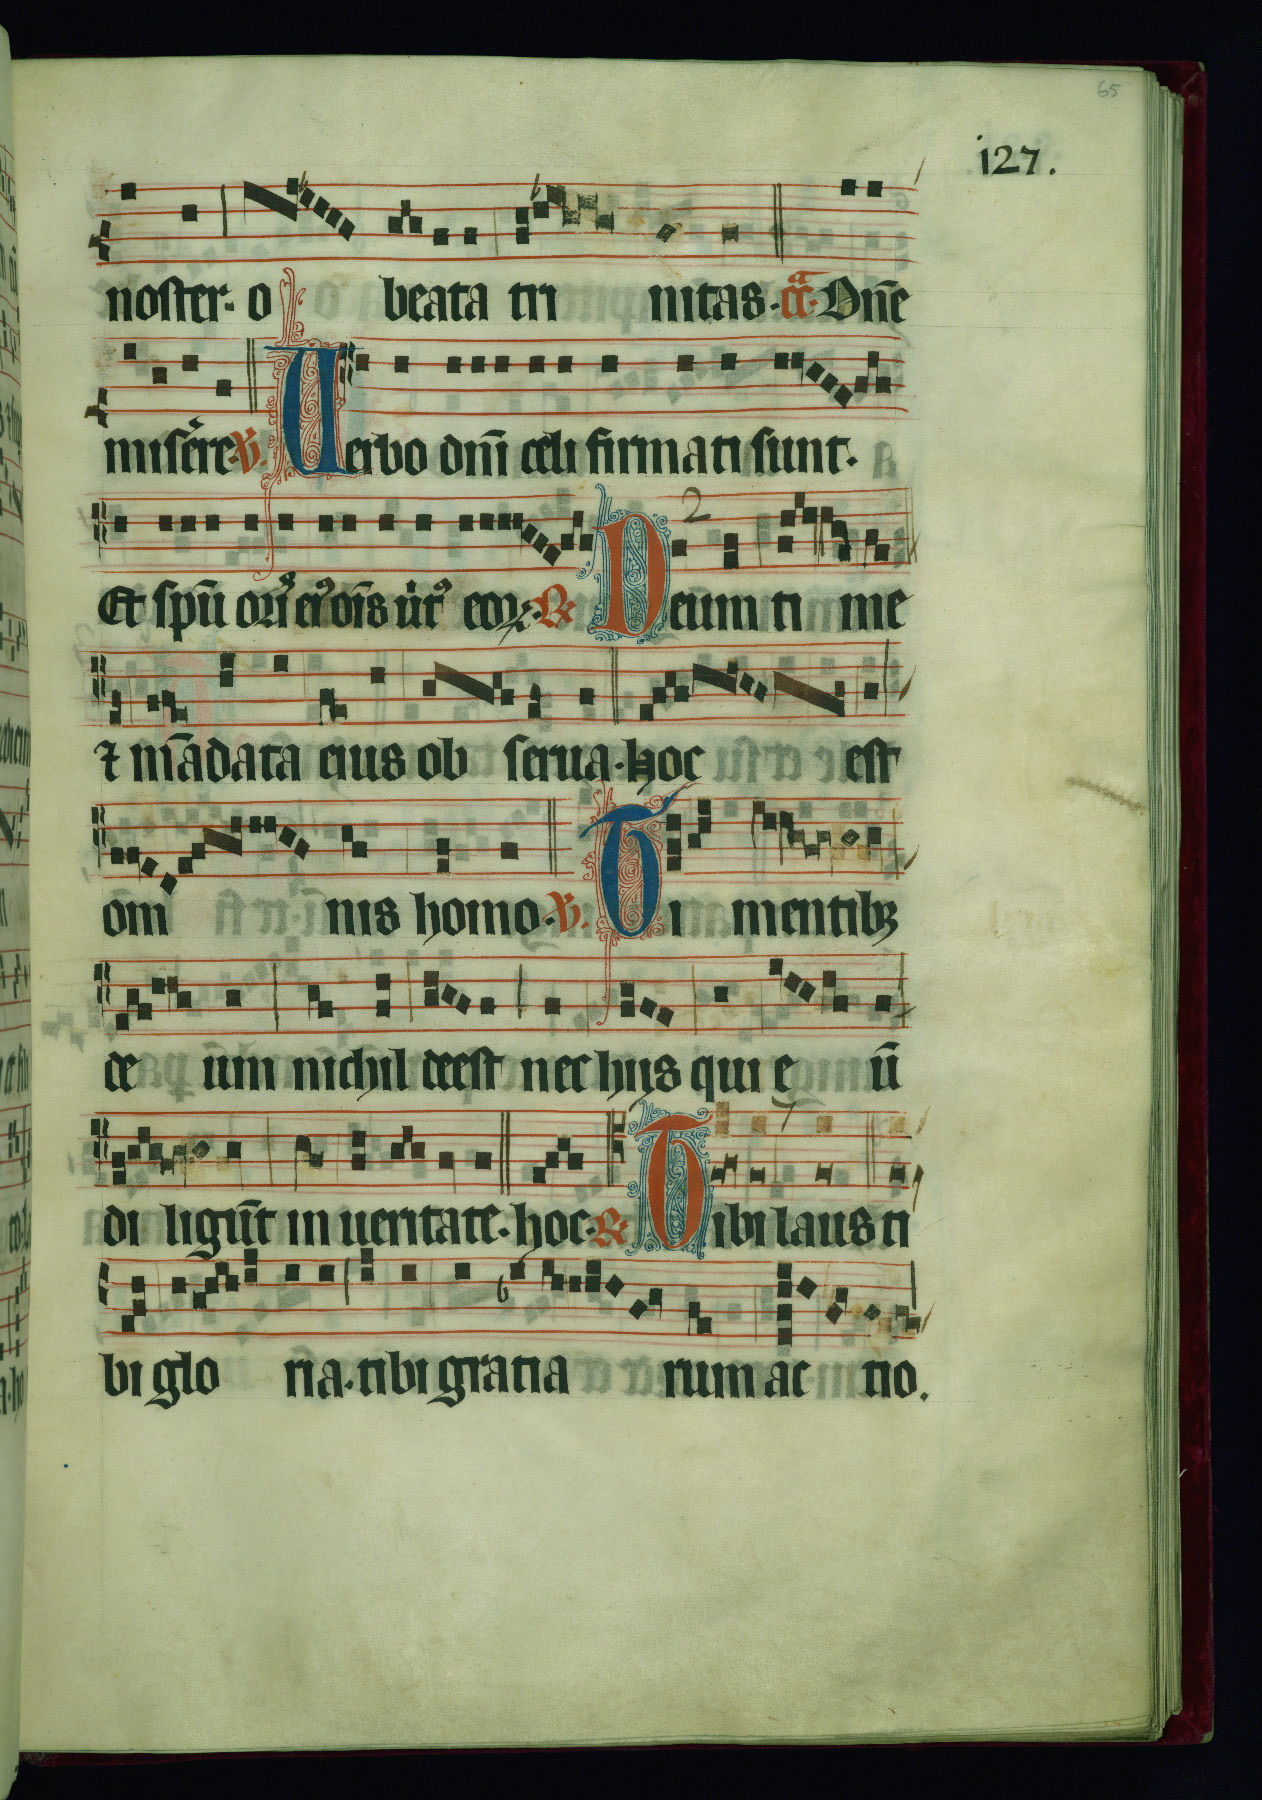 65
127.
noster. o beata tri nitas. Dn̄e
miserere ℣. Verbo dnı̄ celi firmati sunt.
Et spū eoꝝ. ℟. Deum ti me
⁊ mādata eius ob serua. hoc est
om nis homo. ℣. Ti mentibꝫ
de um nichil deest nec hiis qui e ū
di ligūt in ueritate. hoc. ℟. Tibi laus ti
bi glo ria. tibi gratia rum ac tio.